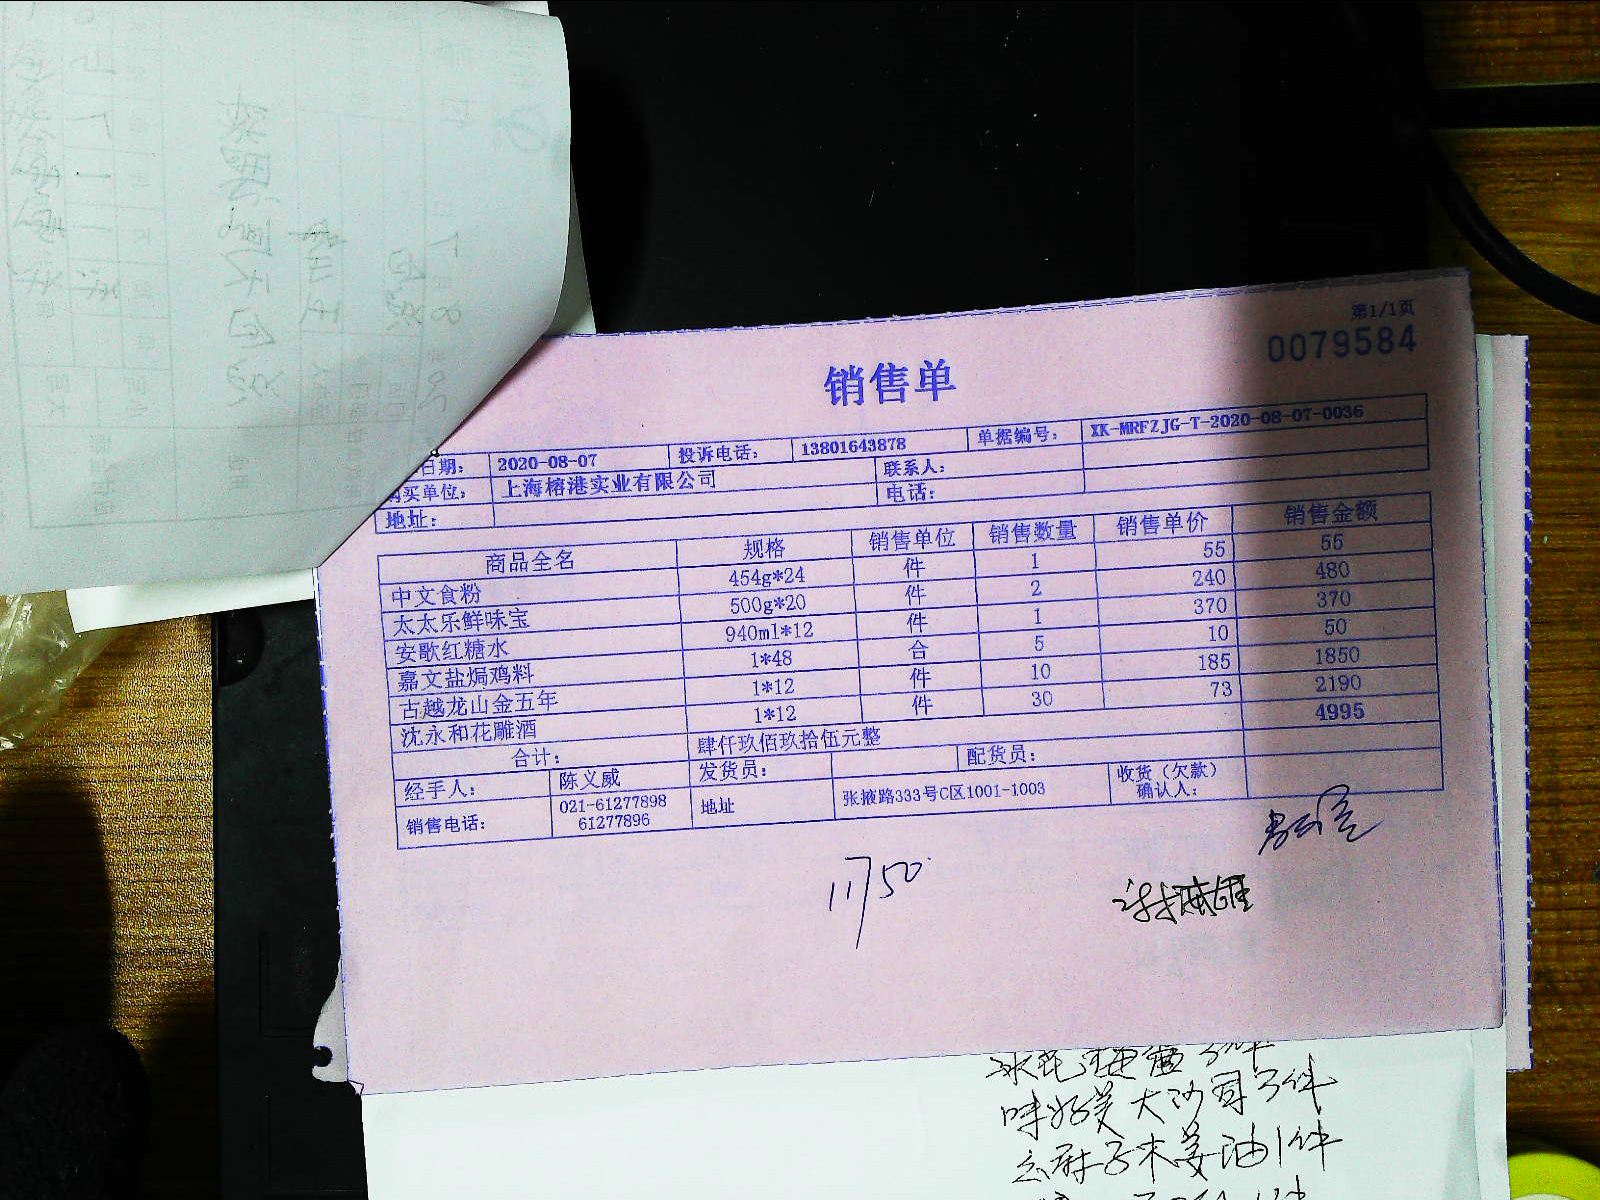 第1/1页
0079584
销售单
日期： 2020-08-07 投诉电话： 13801643878 单据编号： XK-MRFZJG-T-2020-08-07-0036
购买单位： 上海榕港实业有限公司 联系人：
地址： 电话：
商品全名 规格 销售单位 销售数量 销售单价 销售金额
中文食粉 454g*24 件 1 55 55
太太乐鲜味宝 500g*20 件 2 240 480
安歌红糖水 940ml*12 件 1 370 370
嘉文盐焗鸡料 1*48 合 5 10 50
古越龙山金五年 1*12 件 10 185 1850
沈永和花雕酒 1*12 件 30 73 2190
合计： 肆仟玖佰玖拾伍元整 4995
经手人： 陈义威 发货员： 配货员：
销售电话： 021-61277898 61277896 地址 张掖路333号C区1001-1003 收货（欠款）确认人：
味好美大沙司3件
姜油1件